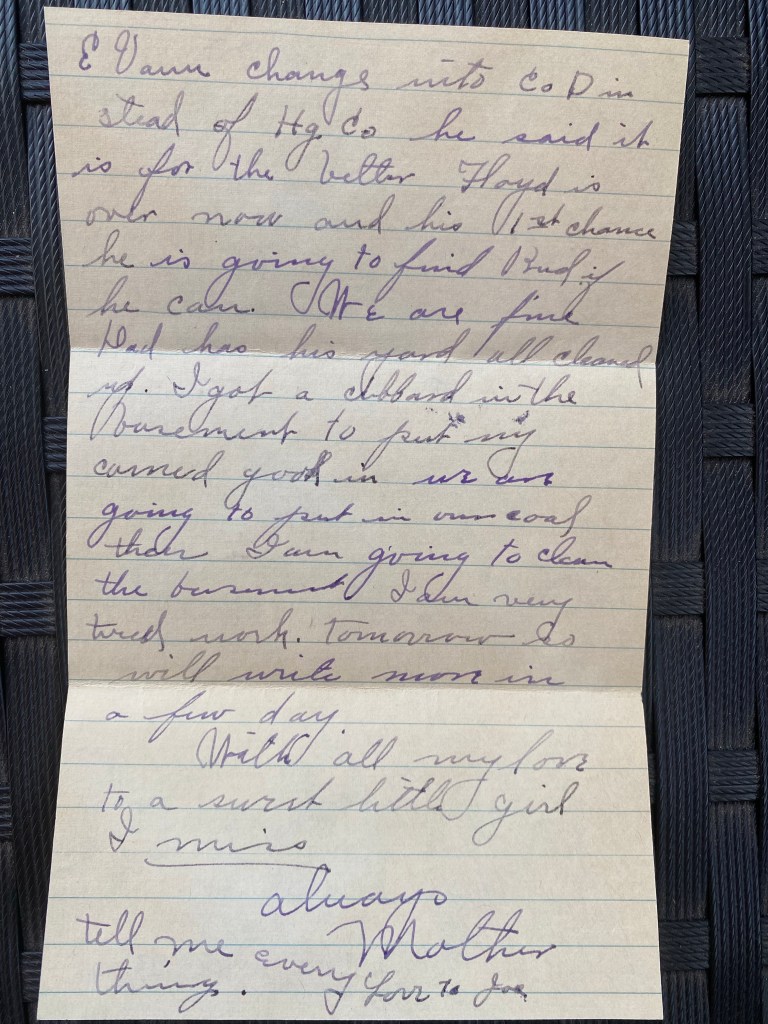 E Vann change into Co D in
stead of Hq Co he said it
is for the better Floyd is
over now and his 1st chance
he is going to find Bud if
he can. We are fine
Dad has his yard all cleaned
up. I got a cubbard in the
basement to put my
canned good in we are
going to put in our coal
then I am going to clean
the basement I am very
tired work. tomorrow so
will write more in
a few day
With all my love
to a sweet little girl
I miss
always
Mother
tell me every
thing. Love to Joe